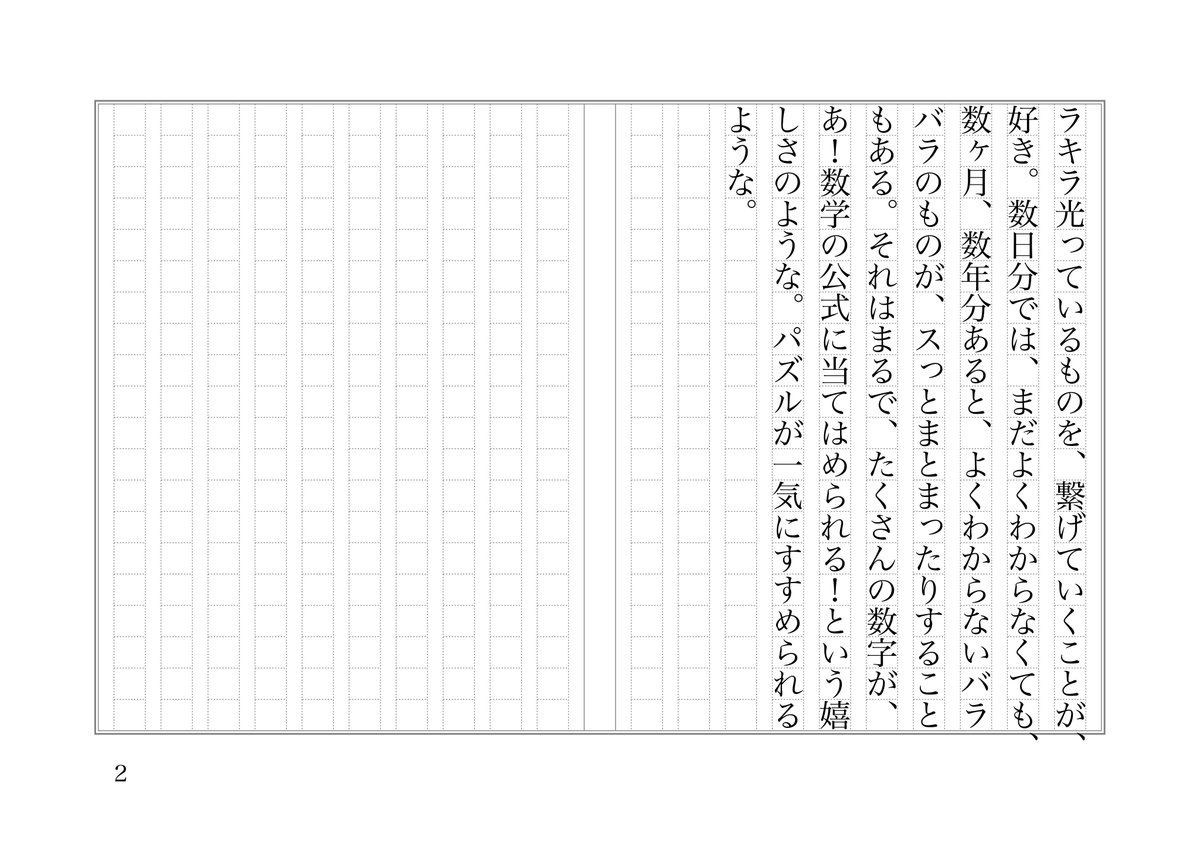 ラキラ光っているものを、繋げていくことが、
好き。数日分では、まだよくわからなくても、
数ヶ月、数年分あると、よくわからないバラ
バラのものが、スっとまとまったりすること
もある。それはまるで、たくさんの数字が、
あ！数学の公式に当てはめられる！という嬉
しさのような。パズルが一気にすすめられる
ような。
2